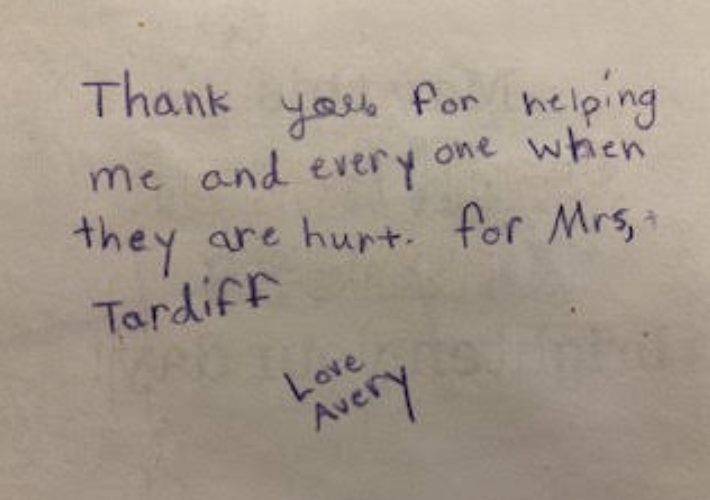 Thank you for helping
me and every one when
they are hurt. for Mrs,
Tardiff
Love
Avery